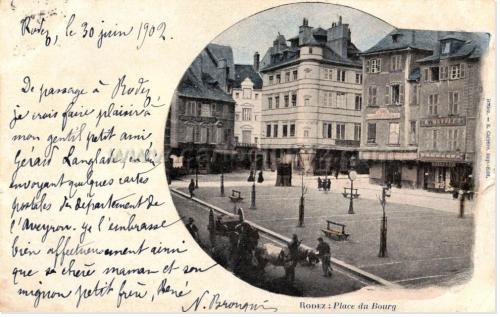 Rodez, le 30 juin 1902.
De passage à Rodez
je crois faire plaisir à
mon gentil petit ami
Gérard Langlade, en lui
envoyant quelques cartes
postales du département de
l'Aveyron. Je l'embrasse
bien affectueusement ainsi
que sa chère maman et son
mignon petit frère, René
RODEZ : Place du Bourg